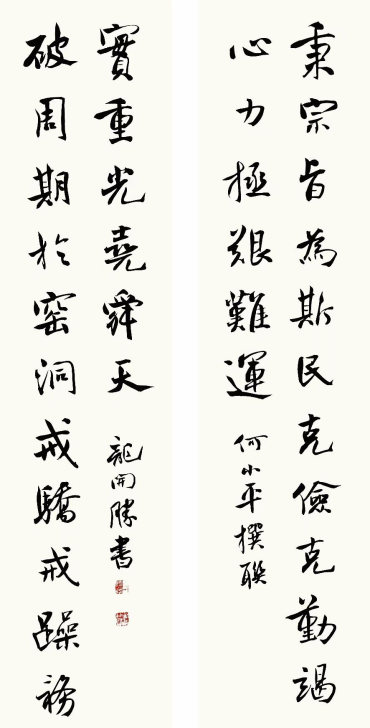 秉宗旨為斯民克儉克勤竭
心力極艱難運
何小平撰聯
破周期於窑洞戒驕戒躁務
實重光堯舜天
龍開勝書